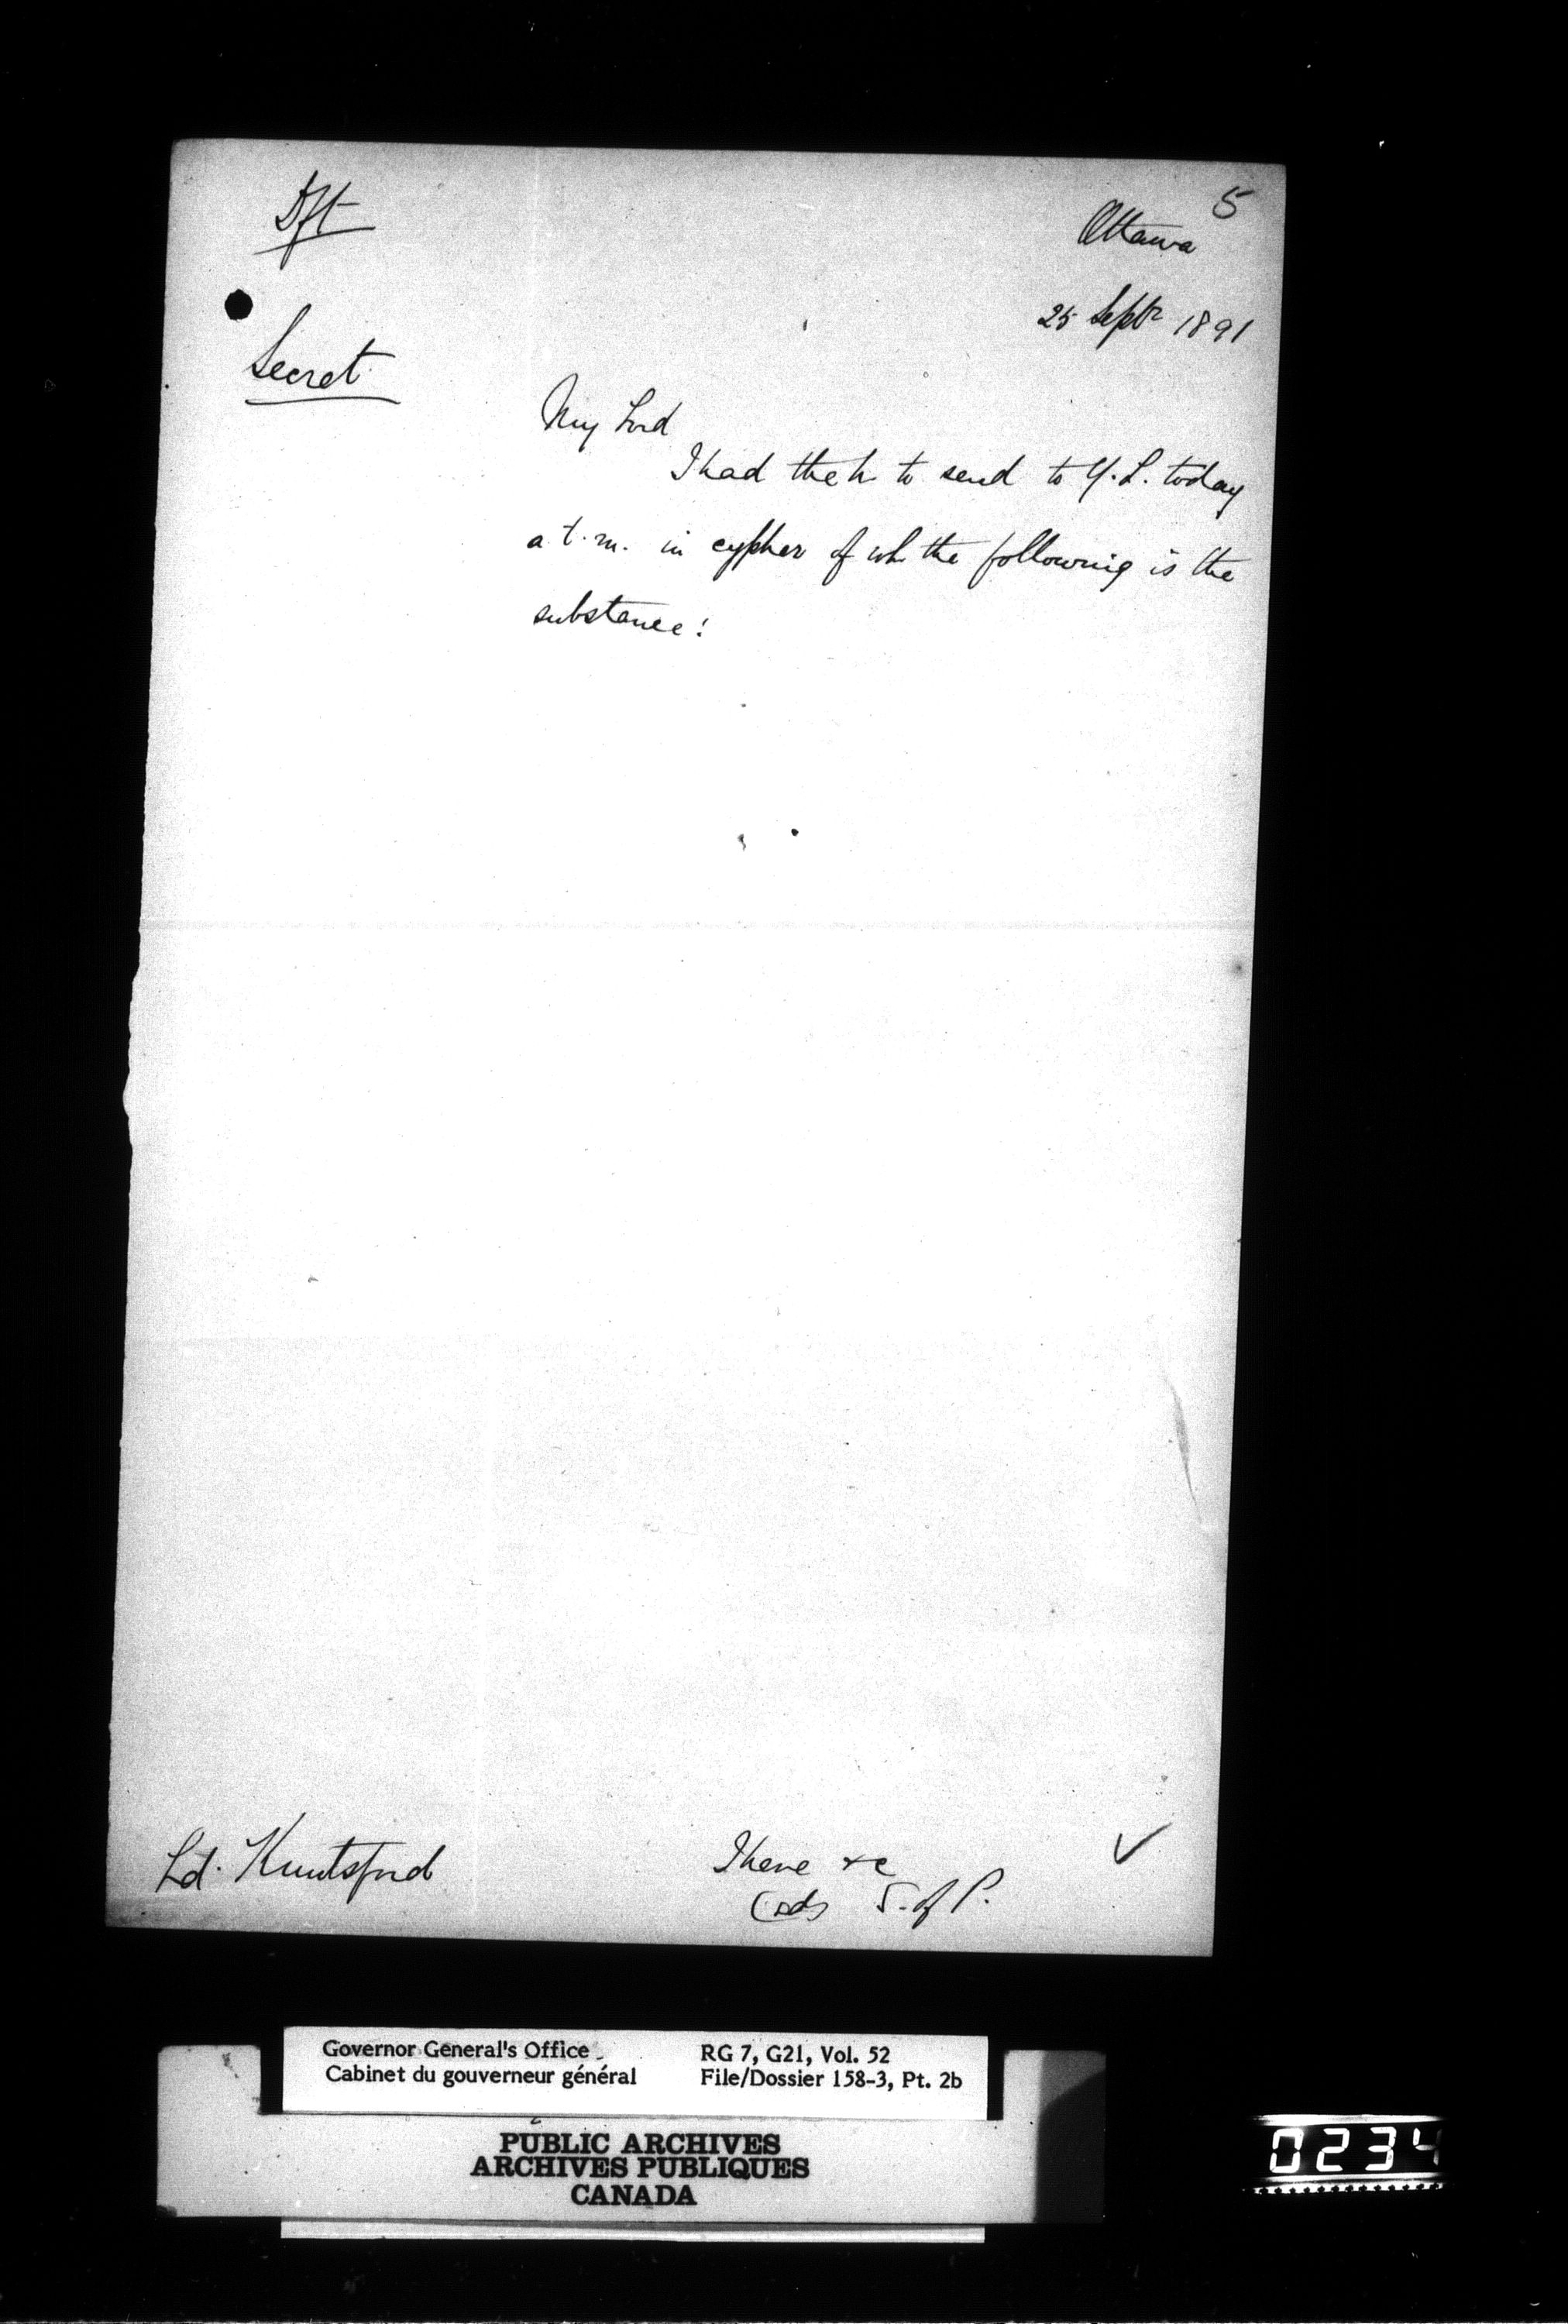 5
Dft
Ottawa
25 Septr 1891
Secret
My Lord
I had the h to send to Y.L. today
a t.m. in cypher of wh the following is the
substance:
Ld. Knutsford
I have &c
(sd) S. of P.
Governor General's Office
Cabinet du gouverneur général
RG 7, G21, Vol. 52
File/Dossier 158-3, Pt. 2b
PUBLIC ARCHIVES
ARCHIVES PUBLIQUES
CANADA
0234